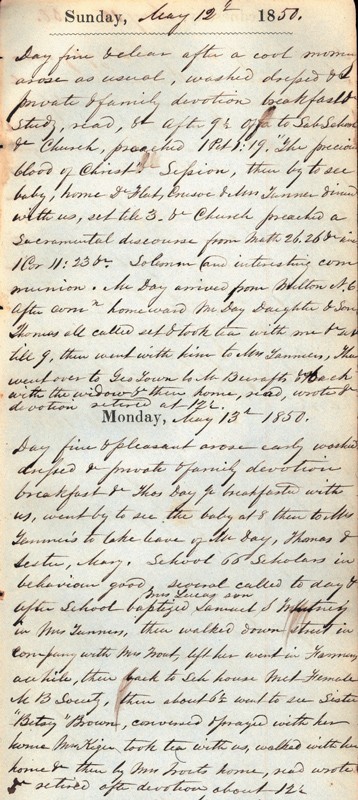 Sunday, May 12th 1850.
Day fine & clear after a cool morning
arose as usual, washed dressed &c
private & family devotion breakfast &
Study, read, &c After 9½ off to Sab School
&c Church, preached 1 Pet 1:19, "The precious
blood of Christ" &c Session, then by to see
baby, home Dr Flat, & Mrs Tanner dined
with us, set till 3. &c Church preached a
Sacramental discourse from Math 26.26 & in
1 Cor 11:23 &c. Solemn and interesting com
munion. Mr Day arrived from Milton N.C
After comn homeward Mr Day Daughter & Son
Thomas all called set & took tea with me & sat
till 9, then went with him to Mrs Tanners, Then
went over to Geo Town to Mr & back
with the widow & then home, read, wrote &
devotion retired at 12½.
Monday, May 13th 1850.
Day fine & pleasant arose early washed
dressed & private & family devotion
breakfast &c Thos Day Jr breakfasted with
us, went by to see the baby at 8 then to Mrs
Tanners to take leave of Mr Day, Thomas &
Sister, Mary. School 66 Scholars in
behaviour good, several called to day &
after School baptized Mrs Lucas son Samuel S
in Mrs Tanners, then walked down street in
company with Mrs Trout, left her went in
awhile, then back to Sch house Met Female
M B Society, then about 6½ went to see Sister
Betsy "Brown, conversed & prayed with her
home Mrs Kiger took tea with us, walked with her
home & then by Mrs Trouts home, read wrote
& retired after devotion about 12½